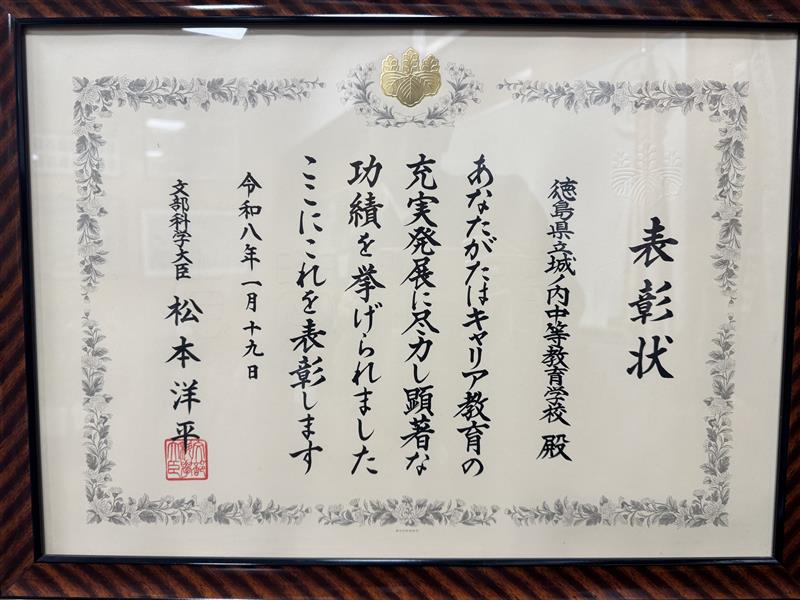 表彰状
徳島県立城ノ内中等教育学校 殿
あなたがたはキャリア教育の
充実発展に尽力し顕著な
功績を挙げられました
ここにこれを表彰します
令和八年一月十九日
文部科学大臣 松本洋平